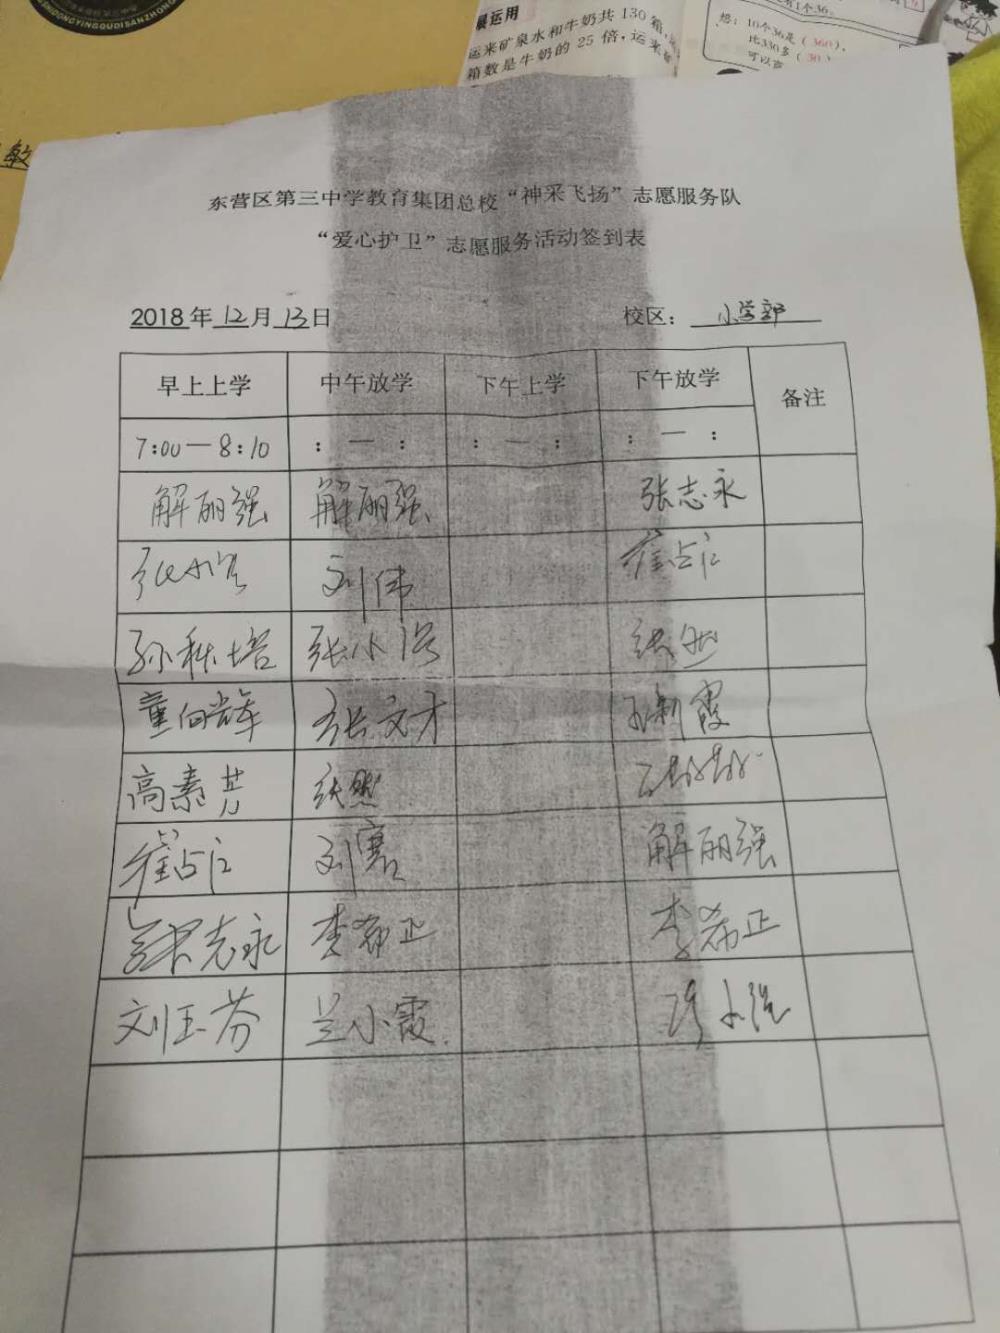 SHANDONGYINGQUDISANZHONG
敏
展运用
运来矿泉水和牛奶共 130 箱，
箱数是牛奶的 25 倍，运来
想：10个36是（360），
比330多（30）
东营区第三中学教育集团总校“神采飞扬”志愿服务队
“爱心护卫”志愿服务活动签到表
2018年12月13日 校区：小学部
早上上学 中午放学 下午上学 下午放学 备注
7:00—8:10 : — : : — : : — :
解丽强 解丽强 张志永
刘伟 崔占江
孙秋培 张然
董向辉 张文才
高素芳 张然
崔占江 刘 解丽强
张志永 李希正 李希正
刘玉芬 兰小霞